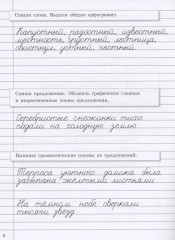 Спиши слова. Выдели общую орфограмму.
Капустный, радостный, известный,
местность, грустный, лестница,
свистнул, устный, честный.
Спиши предложение. Обозначь графически главные
и второстепенные члены предложения.
Серебристые снежинки тихо
падали на холодную землю
Выпиши грамматические основы из предложений.
Терраса уютного домика была
завалена желтыми листьями
На тёмном небе сверкали
тысячи звёзд